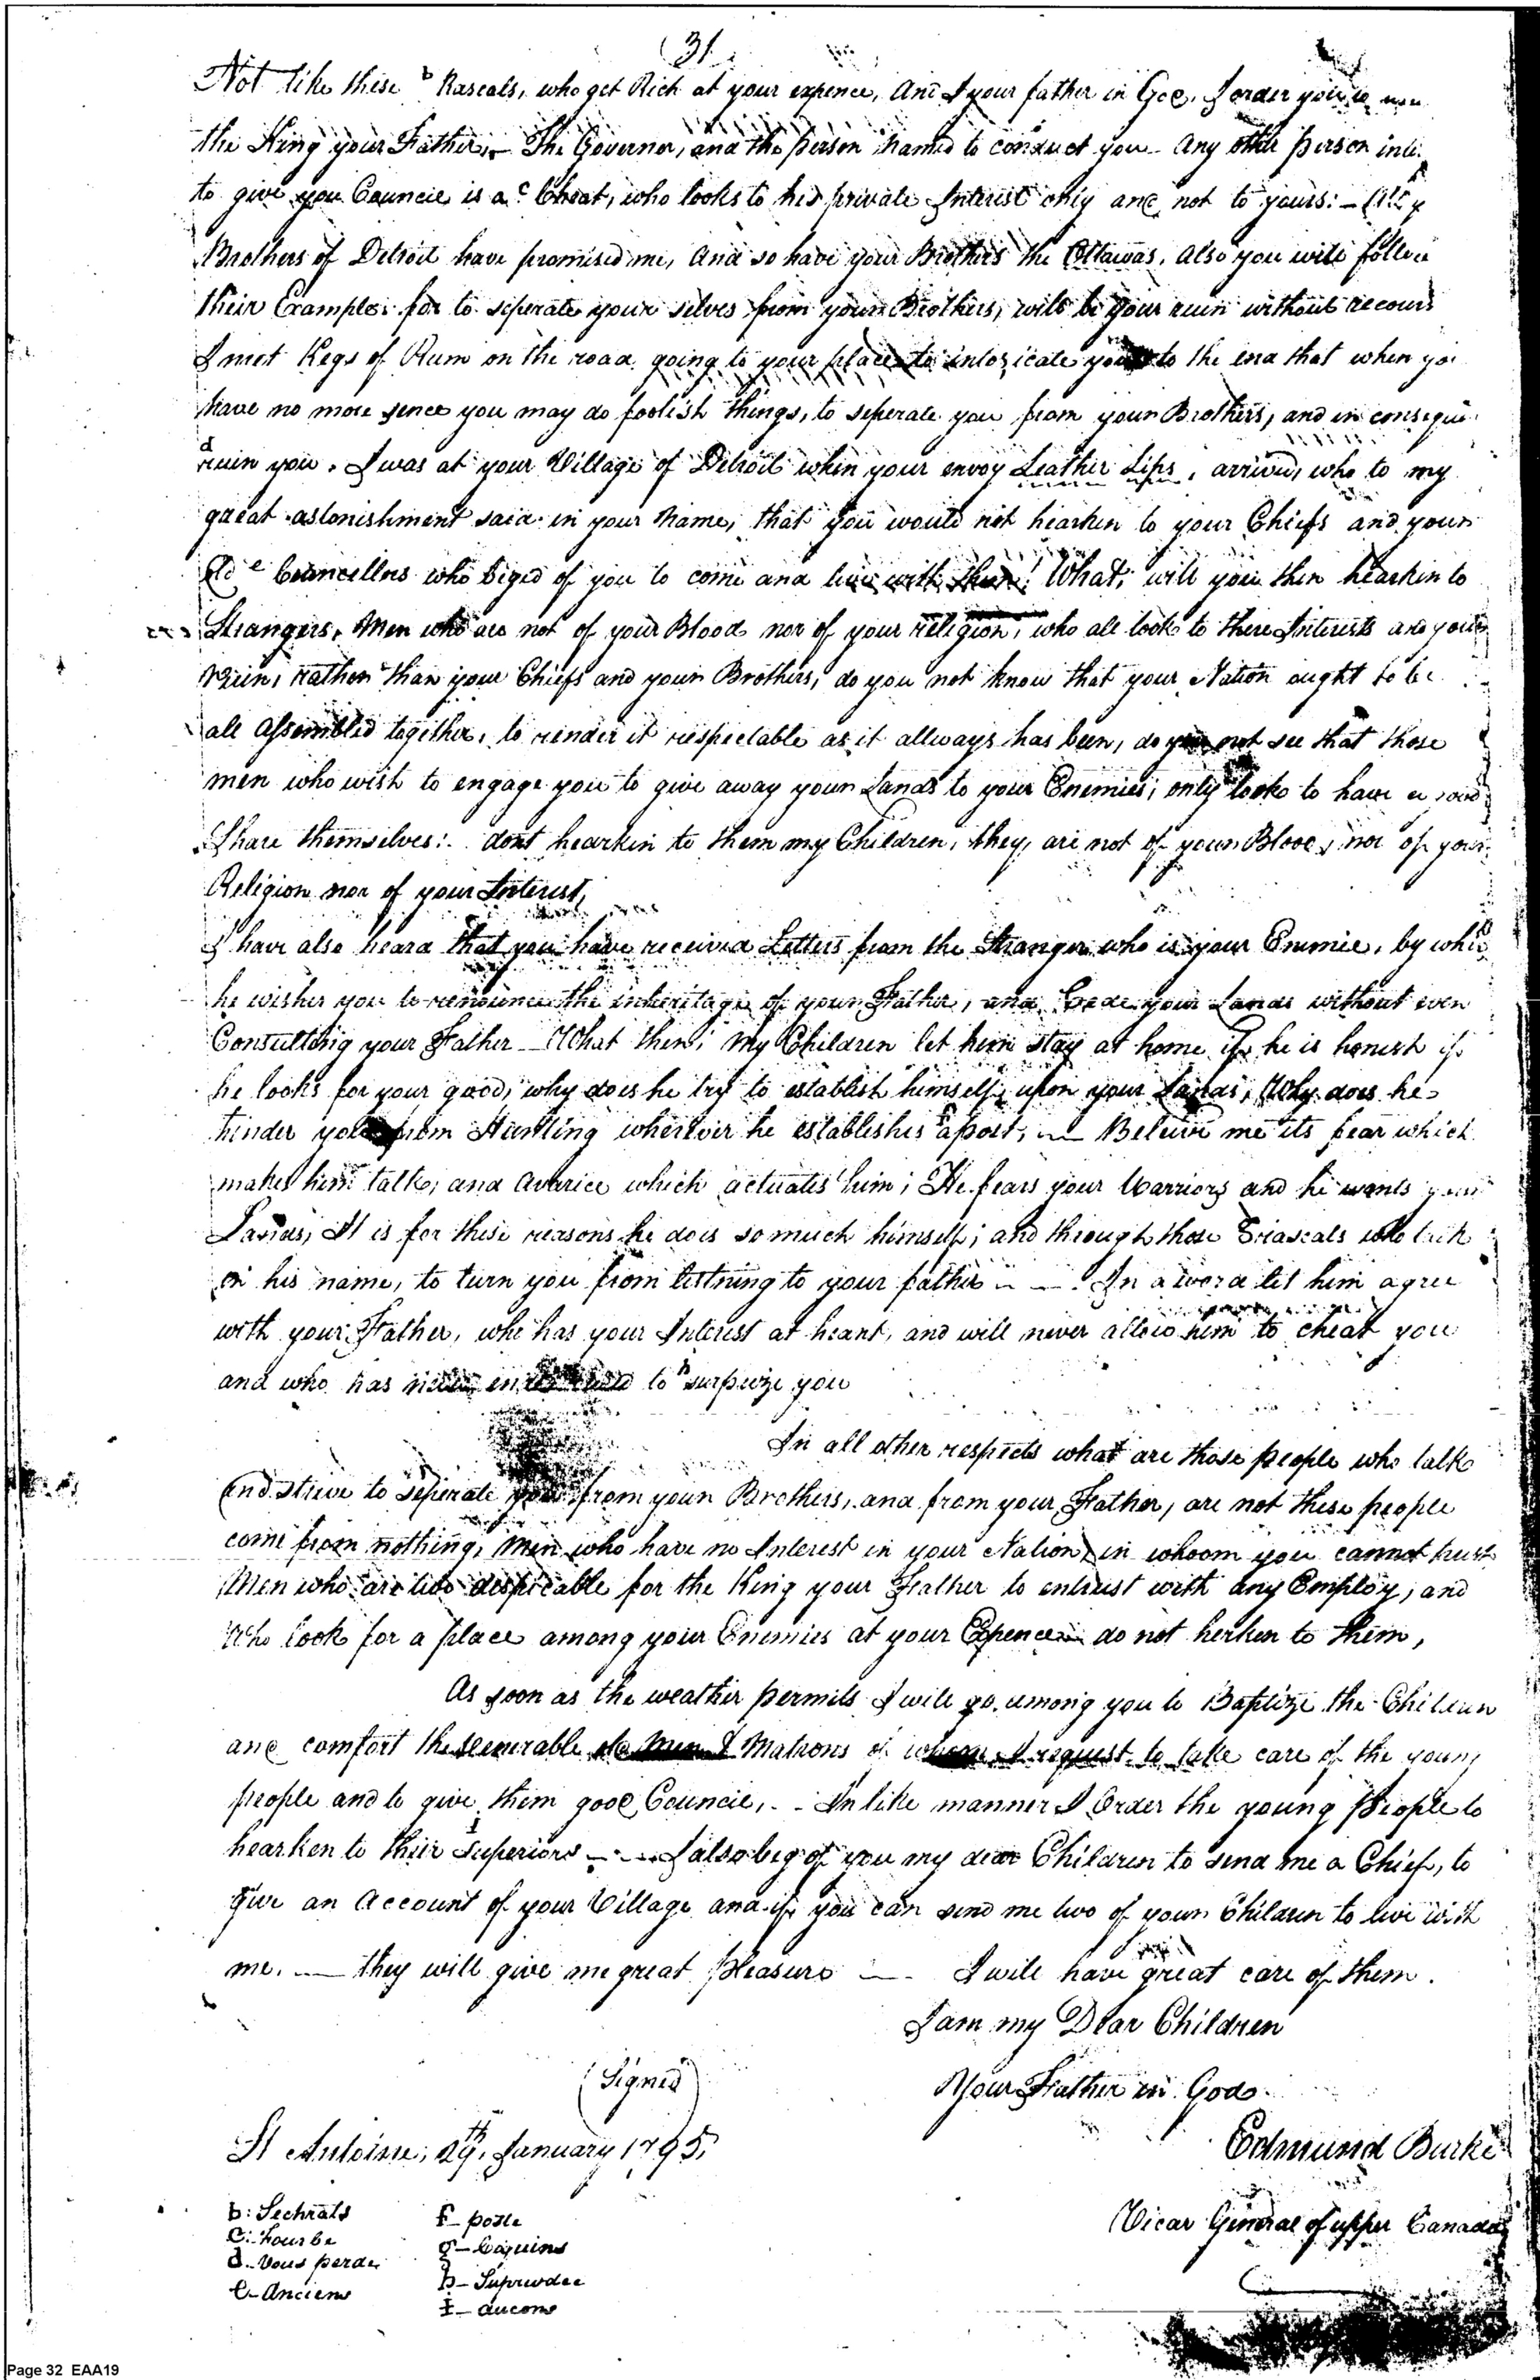 (31
Not like these b Rascals, who get Rich at your expence, And I your father in God, I order you
the King your Father, — The Governor, and the person named to conduct you — Any other person
to give you Council is a c Cheat, who looks to his private Interest only and not to yours: —
Brothers of Detroit have promised me, And so have your Brothers the Ottawas, Also you will follow
their Example: for to seperate your selves from your Brothers, will be your ruin without recours
I met Kegs of Rum on the road going to your place to intoxicate you to the end that when you
have no more sence you may do foolish things, to seperate you from your Brothers, and in
d ruin you. I was at your Village of Detroit when your envoy Leather Lips, arrived, who to my
great astonishment said in your Name, that you would not hearken to your Chiefs and your
Old e Councellors who beged of you to come and live with them! What, will you then hearkin to
Strangers, Men who are not of your Blood nor of your religion, who all look to there Interests and your
Ruin, Rather than your Chiefs and your Brothers, do you not know that your Nation ought to be
all Assembled together, to render it respectable as it allways has been, do you not see that those
men who wish to engage you to give away your Lands to your Enemies, only looks to have a good
Share themselves: dont hearkin to them my Children, they are not of your Blood, nor of your
Religion nor of your Interest,
I have also heard that you have received Letters from the Stranger who is your Enemie, by which
he wishes you to renounce the inheritage of your Father, and Cede your Lands without even
Consulting your Father — What then, my Children let him stay at home if he is honest if
he looks for your good, why does he try to establish himself upon your Lands, Why does he
hinder you from Hunting wherever he establishes f a post, — Believe me its fear which
makes him talk, and Avarice which actuates him; He fears your Warriors and he wants your
Lands, It is for these reasons he does so much himself; and through those g riascals who talk
in his name, to turn you from listning to your father — — . In a word let him agree
with your Father, who has your Interest at heart, and will never allow him to cheat you
and who has never to h surprize you
In all other respects what are those people who talk
And strive to seperate you from your Brothers, and from your Father, are not these people
come from nothing, Men who have no Interest in your Nation, in whoom you cannot trust
Men who are two despicable for the King your Father to entrust with any Employ, and
Who look for a place among your Enemies at your Expence — do not herken to them,
As soon as the weather permits I will go among you to Baptize the Children
and comfort the venerable old Men & Matrons of whom I request to take care of the young
people and to give them good Council, — In like manner I Order the young People to
hearken to their i Superiors — — I also beg of you my dear Children to send me a Chief, to
give an Account of your Village and if you can send me two of your Children to live with
me. — they will give me great pleasure — . I will have great care of them.
I am my Dear Children
(Signed)
Your Father in God
St Antoine, 29th January 1795,
Edmund Burke
Vicar General of upper Canada
b: Sechrats
c: fourbe
d- Vous perdre
e- Anciens
f- poste
g- Coquins
h-
i- ancens
Page 32 EAA19